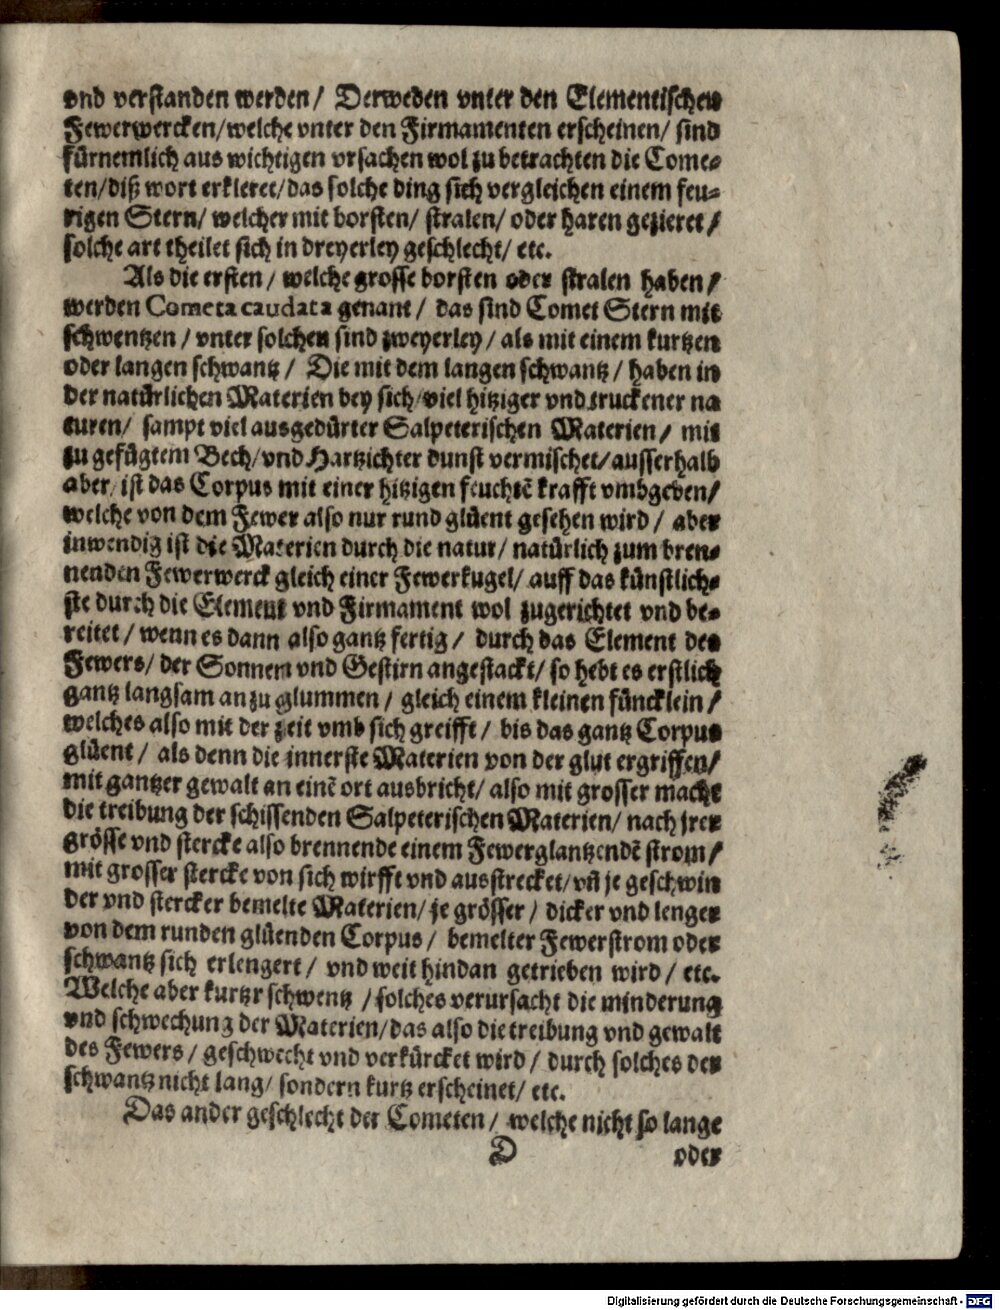 vnd verstanden werden / Derweden vnter den Elementischen
Fewerwercken/welche vnter den Firmamenten erscheinen/ sind
fürnemlich aus wichtigen vrsachen wol zu betrachten die Come⸗
ten/diß wort erkleret/das solche ding sich vergleichen einem feu⸗
rigen Stern/ welcher mit borsten/ stralen/ oder haren gezieret /
solche art theilet sich in dreyerley geschlecht/ etc.
Als die ersten / welche grosse borsten oder stralen haben /
werden Cometa caudata genant / das sind Comet Stern mit
schwentzen / vnter solchen sind zweyerley / als mit einem kurtzen
oder langen schwantz / Die mit dem langen schwantz / haben in
der natürlichen Materien bey sich/viel hitziger vnd truckener na
turen/ sampt viel ausgedürter Salpeterischen Materien / mit
zu gefügtem Bech/vnd Hartzichter dunst vermischet/ausserhalb
aber/ ist das Corpus mit einer hitzigen feuchtẽ krafft vmbgeben/
welche von dem Fewer also nur rund glüent gesehen wird / aber
inwendig ist die Materien durch die natur/ natürlich zum bren⸗
nenden Fewerwerck gleich einer Fewerkugel/ auff das künstlich⸗
ste durch die Element vnd Firmament wol zugerichtet vnd be⸗
reitet / wenn es dann also gantz fertig / durch das Element des
Fewers/ der Sonnem vnd Gestirn angestackt/ so hebt es erstlich
gantz langsam an zu glummen / gleich einem kleinen füncklein /
welches also mit der zeit vmb sich greifft / bis das gantz Corpus
glüent / als denn die innerste Materien von der glut ergriffen/
mit gantzer gewalt an einẽ ort ausbricht/ also mit grosser macht
die treibung der schissenden Salpeterischen Materien/ nach jrer
grösse vnd stercke also brennende einem Fewerglantzendẽ strom /
mit grosser stercke von sich wirfft vnd ausstrecket/vñ je geschwin
der vnd stercker bemelte Materien/ je grösser / dicker vnd lenger
von dem runden glüenden Corpus / bemelter Fewerstrom oder
schwantz sich erlengert / vnd weit hindan getrieben wird / etc.
Welche aber kurtzr schwentz / solches verursacht die minderung
vnd schwechung der Materien/das also die treibung vnd gewalt
des Fewers / geschwecht vnd verkürcket wird / durch solches der
schwantz nicht lang/ sondern kurtz erscheinet/ etc.
Das ander geschlecht der Cometen / welche nicht so lange
D oder
Digitalisierung gefördert durch die Deutsche Forschungsgemeinschaft - DFG